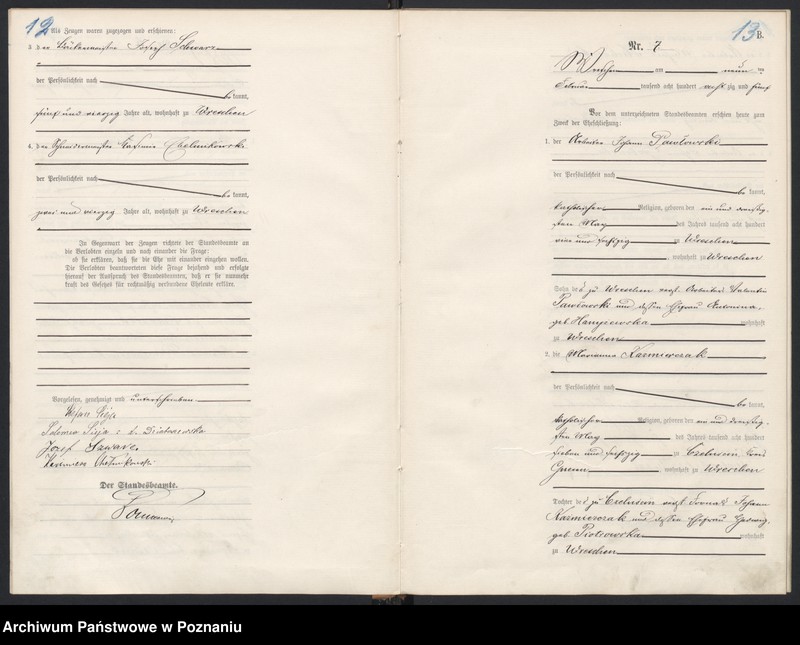 12
Als Zeugen waren zugezogen und erschienen:
3. der Josef Schwarz
der Persönlichkeit nach
be kannt,
fünf und vierzig Jahre alt, wohnhaft zu Wreschen
4. der Schneidermeister Kasimir
der Persönlichkeit nach
be kannt,
zwei und vierzig Jahre alt, wohnhaft zu Wreschen
In Gegenwart der Zeugen richtete der Standesbeamte an
die Verlobten einzeln und nach einander die Frage:
ob sie erklären, daß sie die Ehe mit einander eingehen wollen.
Die Verlobten beantworteten diese Frage bejahend und erfolgte
hierauf der Ausspruch des Standesbeamten, daß er sie nunmehr
kraft des Gesetzes für rechtmäßig verbundene Eheleute erkläre.
Vorgelesen, genehmigt und unterschrieben
Józef
Der Standesbeamte.
13
B.
Nr. 7
Wreschen am neun ten
Februar tausend acht hundert acht zig und fünf
Vor dem unterzeichneten Standesbeamten erschienen heute zum
Zweck der Eheschließung:
1. der Arbeiter Johann Pawłowski
der Persönlichkeit nach
be kannt,
katholischer Religion, geboren den ein und dreißig-
sten May des Jahres tausend acht hundert
vier und sechszig zu Wreschen
, wohnhaft zu Wreschen
Sohn des zu Wreschen Arbeiters Valentin
Pawłowski und dessen Ehefrau Antonina,
geb. wohnhaft
zu Wreschen
2. die Marianna Kazmierczak
der Persönlichkeit nach
be kannt,
katholischer Religion, geboren den ein und dreißig-
sten May des Jahres tausend acht hundert
sieben und sechszig zu
Gnesen, wohnhaft zu Wreschen
Tochter des zu Johann
Kazmierczak und dessen Ehefrau Hedwig,
geb. Piotrowska wohnhaft
zu Wreschen
Archiwum Państwowe w Poznaniu